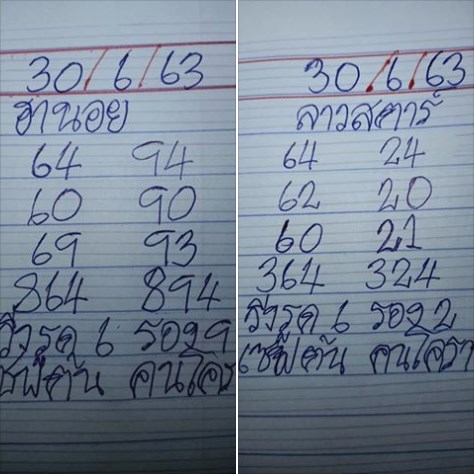 30/6/63
ฮานอย
64 94
60 90
69 93
864 894
วิ่งรูด 6 รอง 9
คนโคร
30/6/63
ลาวสตาร์
64 24
62 20
60 21
364 324
วิ่งรูด 6 รอง 2
เซฟตัน คนโครา